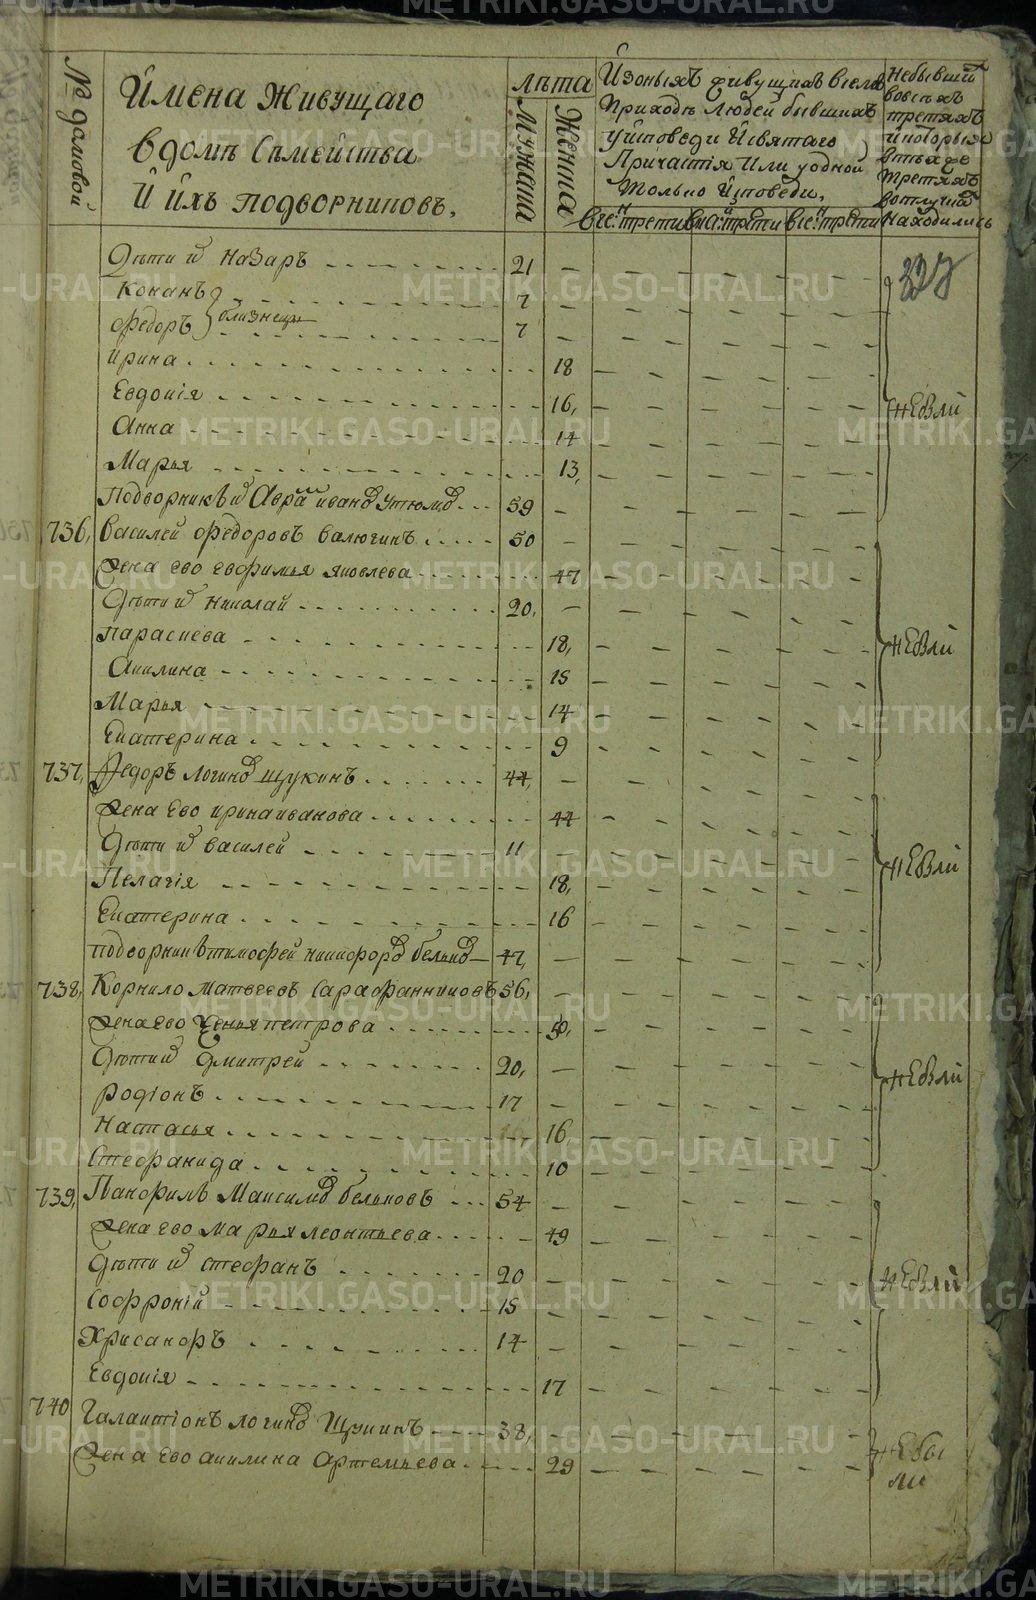 № домовой
Имена живущаго
в домѣ Семейства
И ихъ подворниковъ.
лѣта
Мужска
Женска
Изоныхъ живущихъ всемъ
Приходѣ людей бывшихъ
у исповеди И святаго
Причастія Или у одной
только Исповеди.
Небывший
вовсѣхъ
третяхъ
и которыя
втѣхъ же
третяхъ
вотлучкѣ
находились
Дѣти и Назаръ 21
Конанъ 7
близнецы
Федоръ 7
Ирина 18
Евдокія 16,
Анна 14
Марья 13,
небыли
Подворникъ и Аврам иванов Утюмов 59
736, Василей Федоровъ Валюгинъ 50
Жена ево евфимья яковлева 47
Дѣти и Николай 20,
Параскева 18,
Акилина 15
Марья 14
Екатерина 9
небыли
737, Федоръ логинов щукинъ 44,
Жена Ево ирина иванова 44
Дѣти и василей 11
Пелагія 18,
Екатерина 16
подворникъ тимофей никифоров бельков 47,
небыли
738, Корнило Матвеевъ Сарафанниковъ 56,
Жена ево Ксенья петрова 50,
Дѣти и Дмитрей 20,
Родіонъ 17
Настасья 16,
Стефанида 10
небыли
739, Панфилъ Максимов бельковъ 54
Жена ево Марья леонтьева 49
Дѣти и стефанъ 20
Софроній 15
Хрисанфъ 14
Евдокія 17
небыли
740 Галактіонъ логинов Щукинъ 38,
Жена Ево акилина Артемьева 29
небы
ли
METRIKI.GASO-URAL.RU